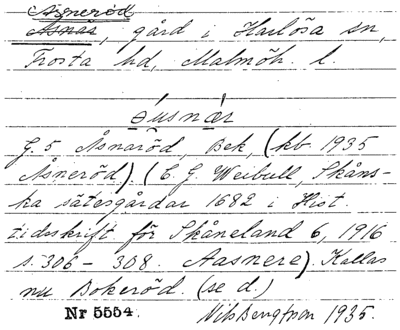 Åsneröd
Åsnäs, gård i Harlösa sn,
Frosta hd, Malmöh. l.
åusnær
G. 5 Åsnaröd, Bek, (kb 1935
Åsneröd). (C. G. Weibull, Skåns-
ka sätesgårdar 1682 i Hist
tidsskrift för Skåneland 6, 1916
s. 306 - 308. Aasnere) Kallas
nu Bokeröd. (se d.)
Nr 5554. Nils Bengtsson 1935.